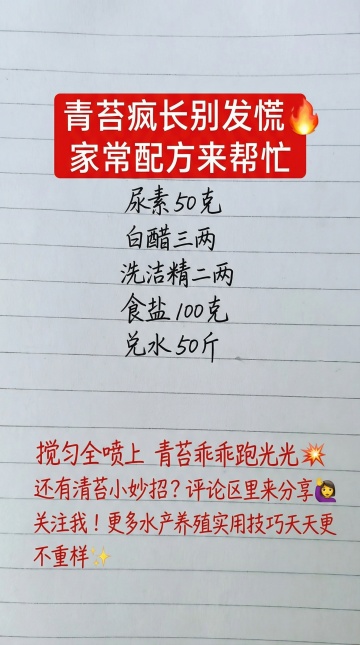 青苔疯长别发慌🔥
家常配方来帮忙
尿素50克
白醋三两
洗洁精二两
食盐100克
兑水50斤
搅匀全喷上 青苔乖乖跑光光💥
还有清苔小妙招?评论区里来分享🙋‍♀️
关注我!更多水产养殖实用技巧天天更
不重样✨